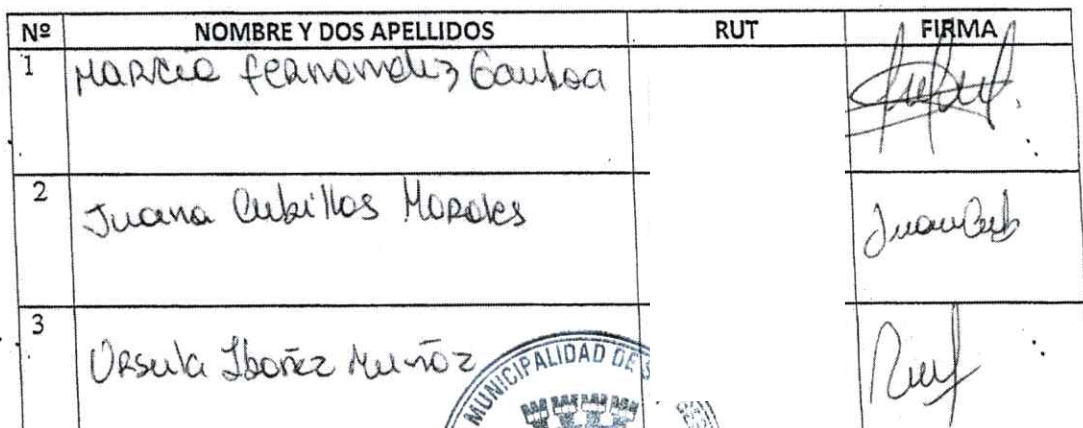 Nº NOMBRE Y DOS APELLIDOS RUT FIRMA
1 Marcia Fernandez Gamboa
2 Juana Cubillos Morales
3 Ursula Ibañez Muñoz
MUNICIPALIDAD DE